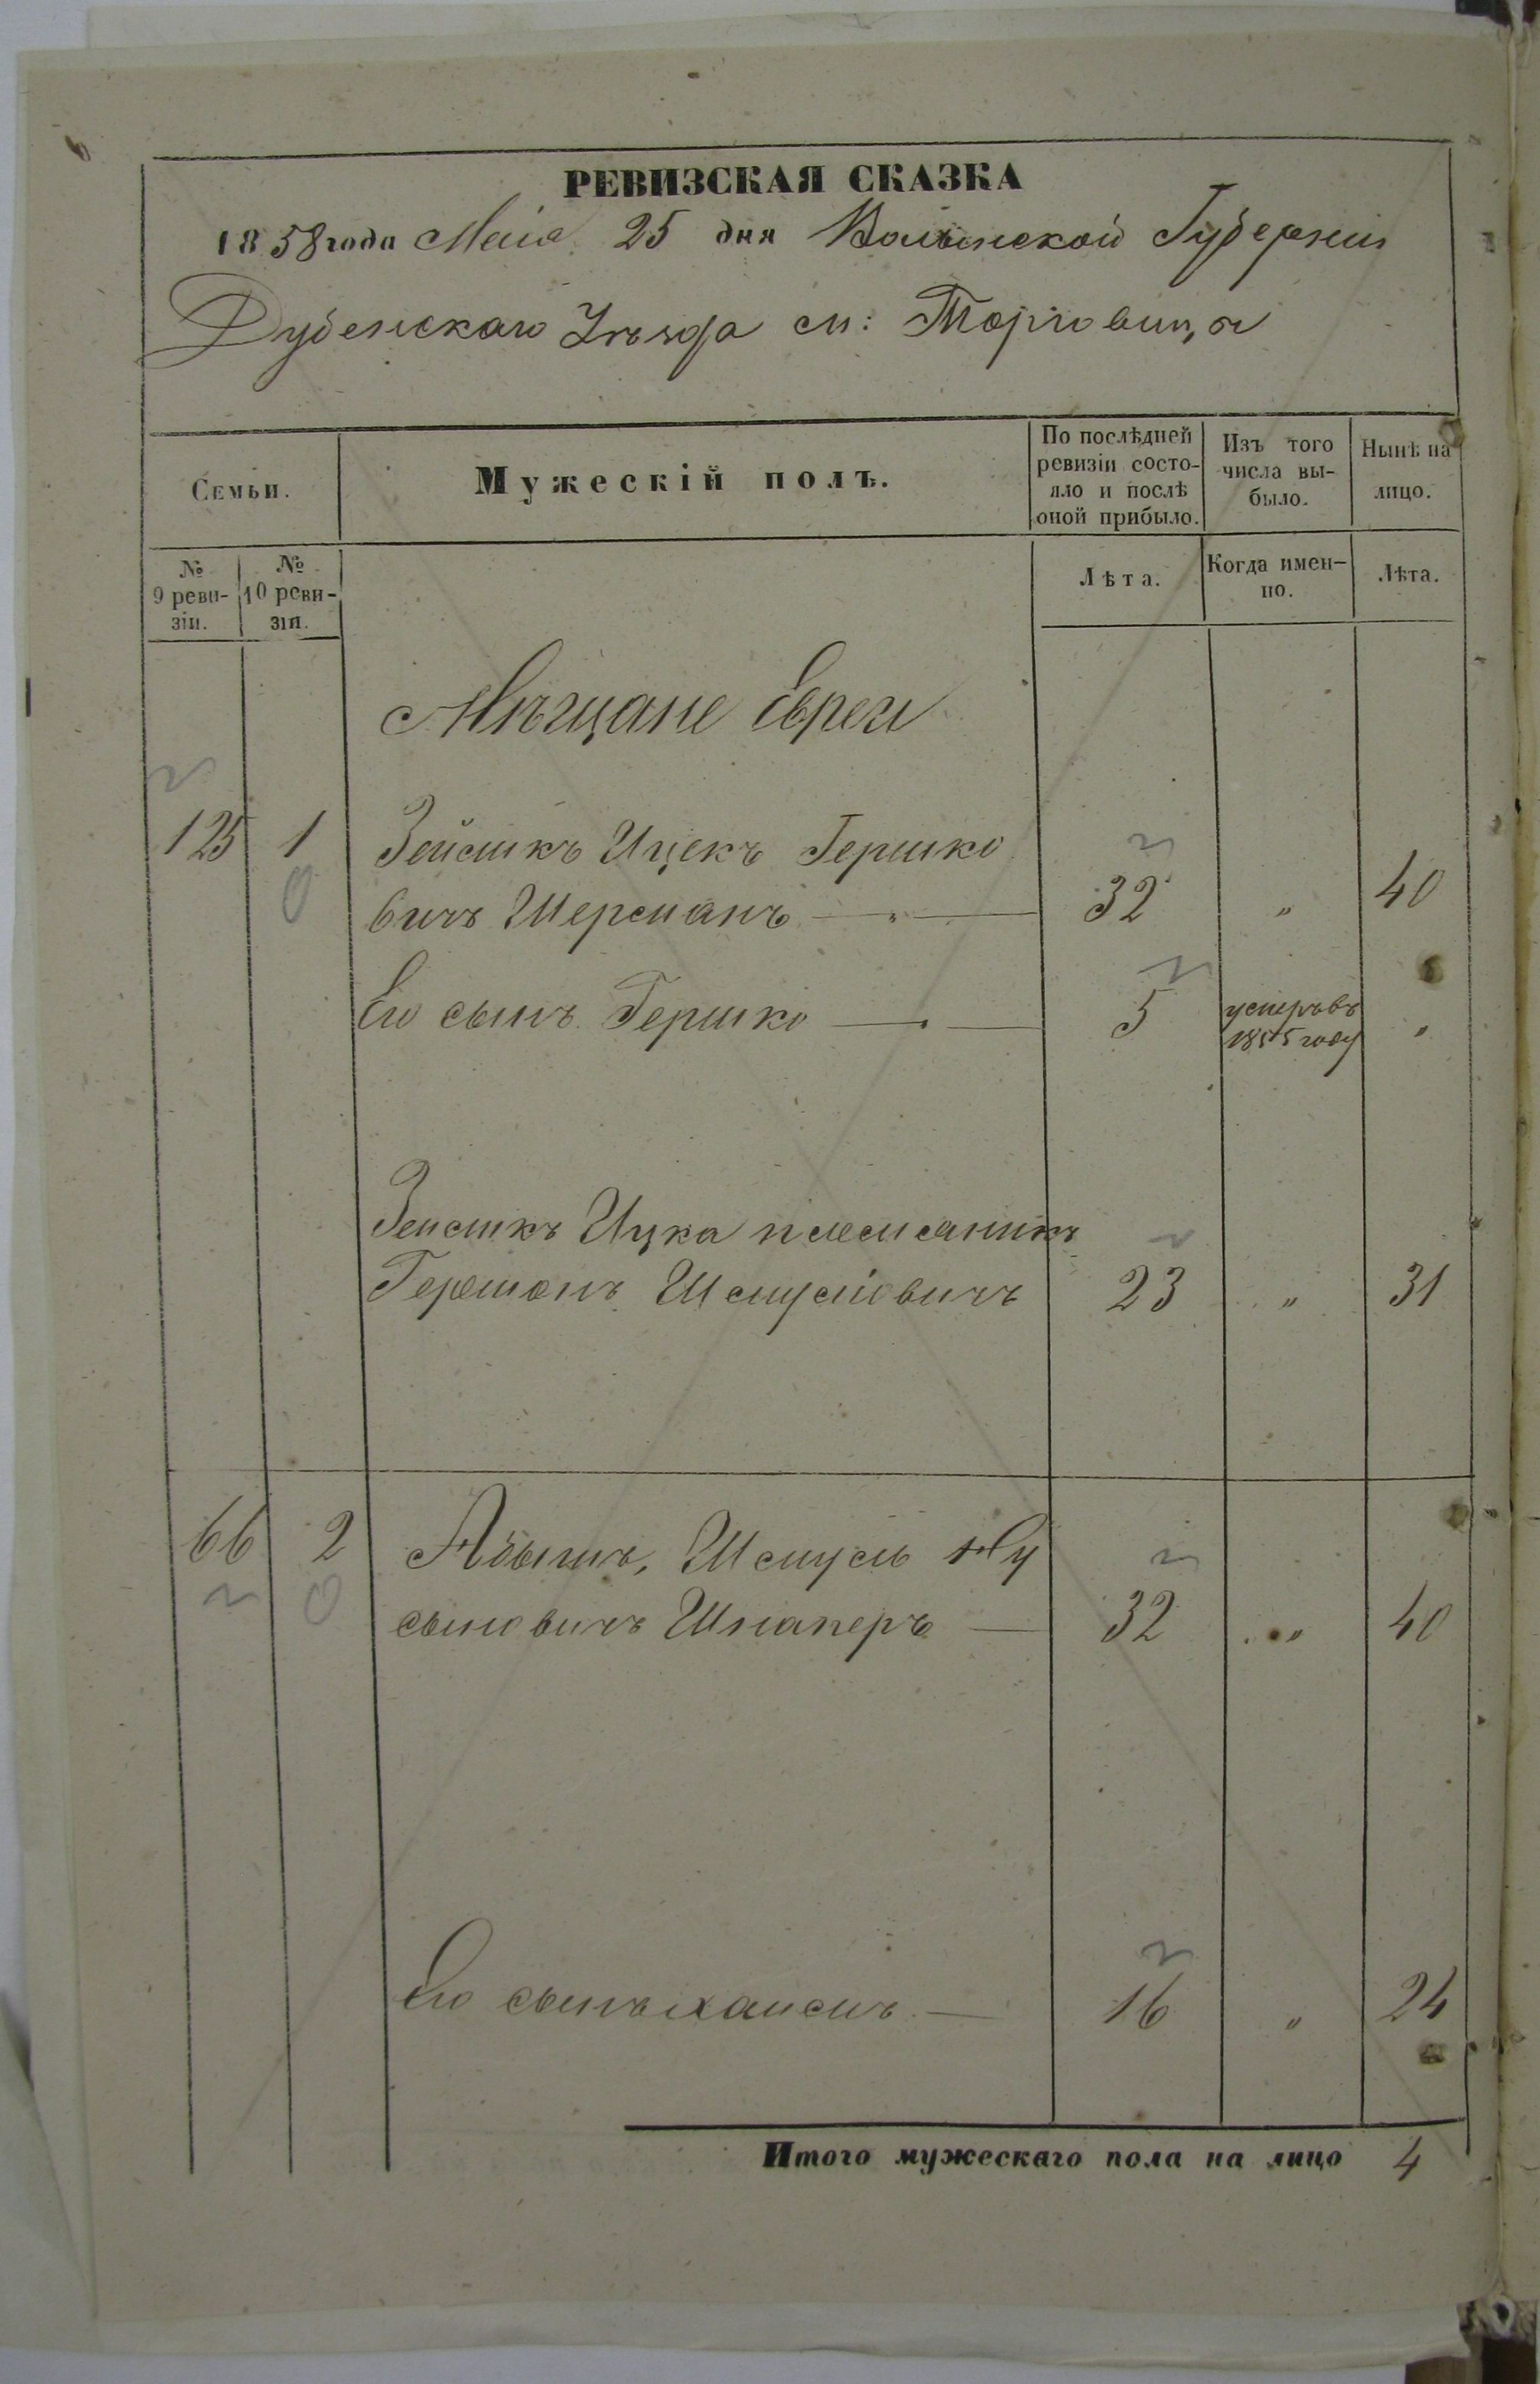 РЕВИЗСКАЯ СКАЗКА
1858 года Маія 25 дня Волынской Губерніи
Дубенскаго Уѣзда м: Торговица
Семьи.
Мужескій полъ.
По послѣдней ревизіи состо-
яло и послѣ
оной прибыло.
Изъ того
числа вы-
было.
Нынѣ на
лицо.
№
9 реви-
зіи.
№
10 реви-
зіи.
Лѣта.
Когда имен-
но.
Лѣта.
Мѣщане Евреи
125 1 Зейликъ Ицекъ Гершко
вичъ Шерманъ 32 „ 40
Его сынъ Гершко 5 умеръ въ
1855 году „
Зейликъ Ицка племянникъ
Гершонъ Шмулiовичъ 23 „ 31
66 2 Абышъ, Шмуль Ну
сыновичъ Шнаперъ 32 „ 40
Его сынъ Хаимъ 16 „ 24
Итого мужескаго пола на лицо 4